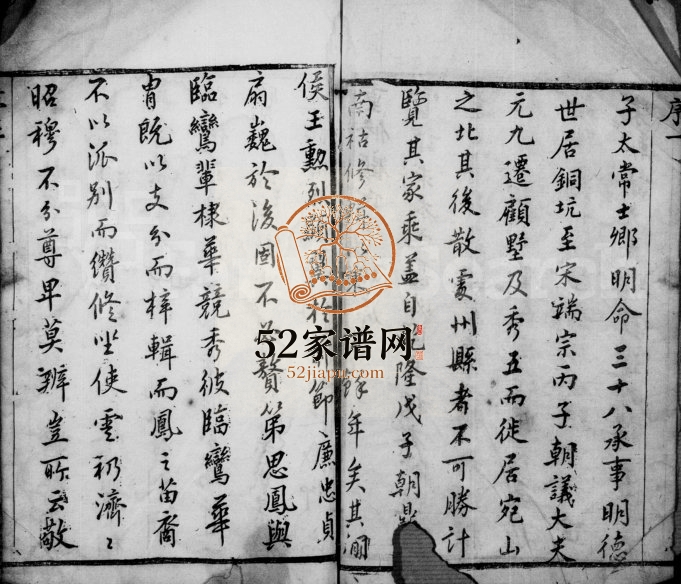 序一
子太常士鄉明命三十八承事明德
世居銅坑至宋端宗丙子朝議大夫
元九遷顧墅及秀五而徙居宛山
之北其後散處州縣者不可勝計
覽其家乘蓋自乾隆戊子朝
南祜修 年矣其
侯王勳列顯 於 節廉忠貞
扇巍於後固不 贅第思鳳與
臨鸞輩棣華競秀彼臨鸞華
胄既以支分而梓輯而鳳之苗裔
不以派別而纘修坐使雲礽濟濟
昭穆不分尊卑莫辨豈所云敬
52家谱网
52jiapu.com